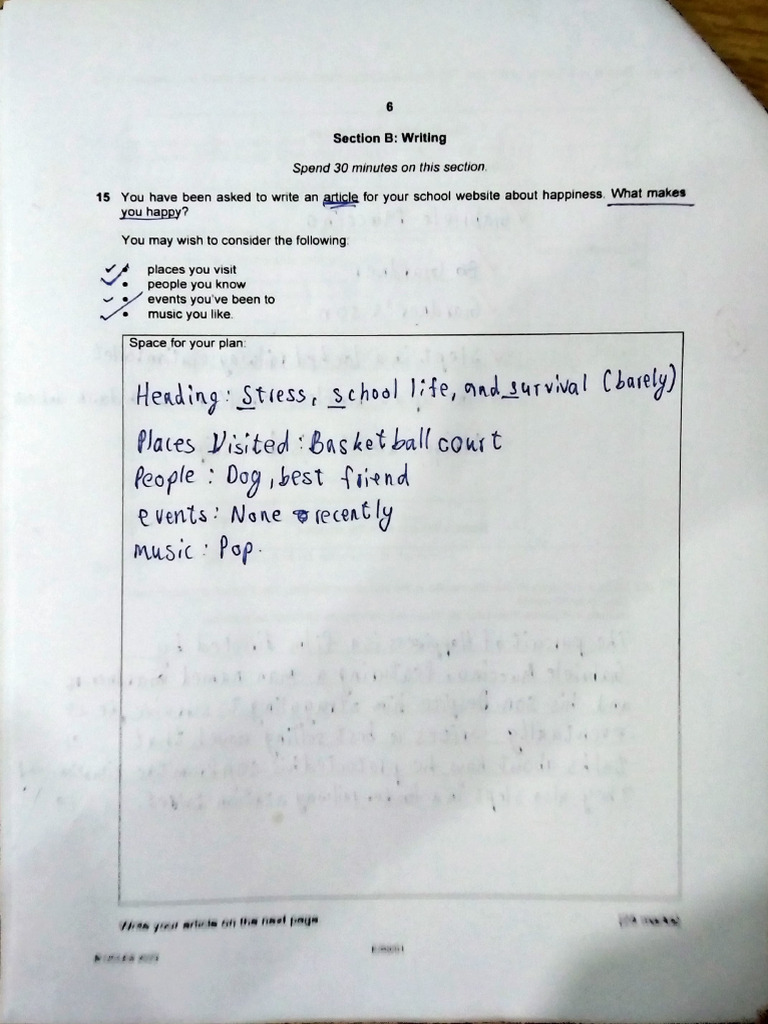 6
Section B: Writing
Spend 30 minutes on this section.
15 You have been asked to write an article for your school website about happiness. What makes
you happy?
You may wish to consider the following:
• places you visit
• people you know
• events you've been to
• music you like.
Space for your plan:
Heading: Stress, school life, and survival (barely)
Places Visited: Basketball court
People: Dog, best friend
events: None recently
music: Pop.
Write your article on the next page